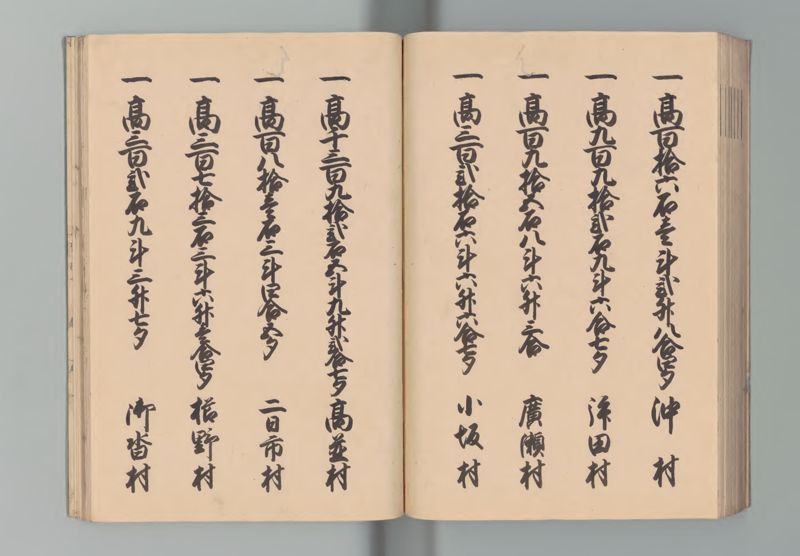 一高百拾六石壱斗弐升八合四夕 沖村
一高九百九拾弐石九斗六合七夕 津田村
一高百九拾五石八斗六升三合 廣瀬村
一高三百弐拾石六斗六升六合七夕 小坂村
一高千三百九拾弐石五斗九升弐合七夕 高並村
一高百八拾壱石三斗四合五夕 二日市村
一高三百七拾三石三斗六升壱合四夕 樒野村
一高三百弐石九斗三升七夕 御沓村